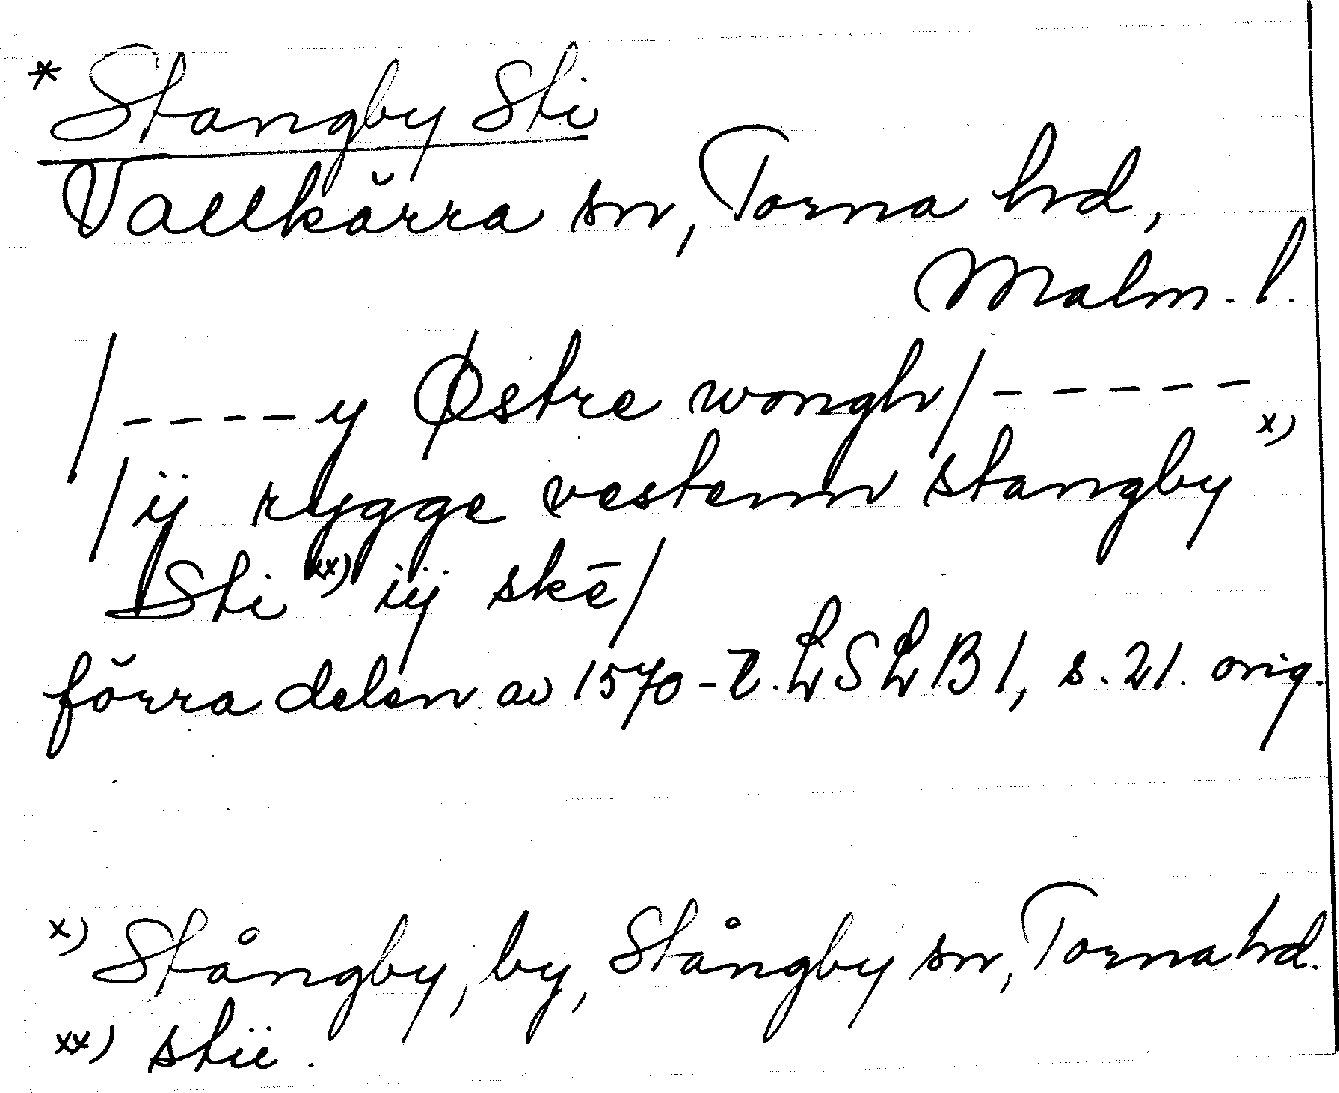 * Stangby Sti
Vallkärra sn, Torna hd,
Malm. l.
/----y Østre wongh/-----
/ÿ rygge vestenn stangby x)
Sti xx) iÿ skē/
förra delen av 1570-t. LSLB 1, s. 21. orig.
x) Stångby, by, Stångby sn, Torna hd.
xx) stii.